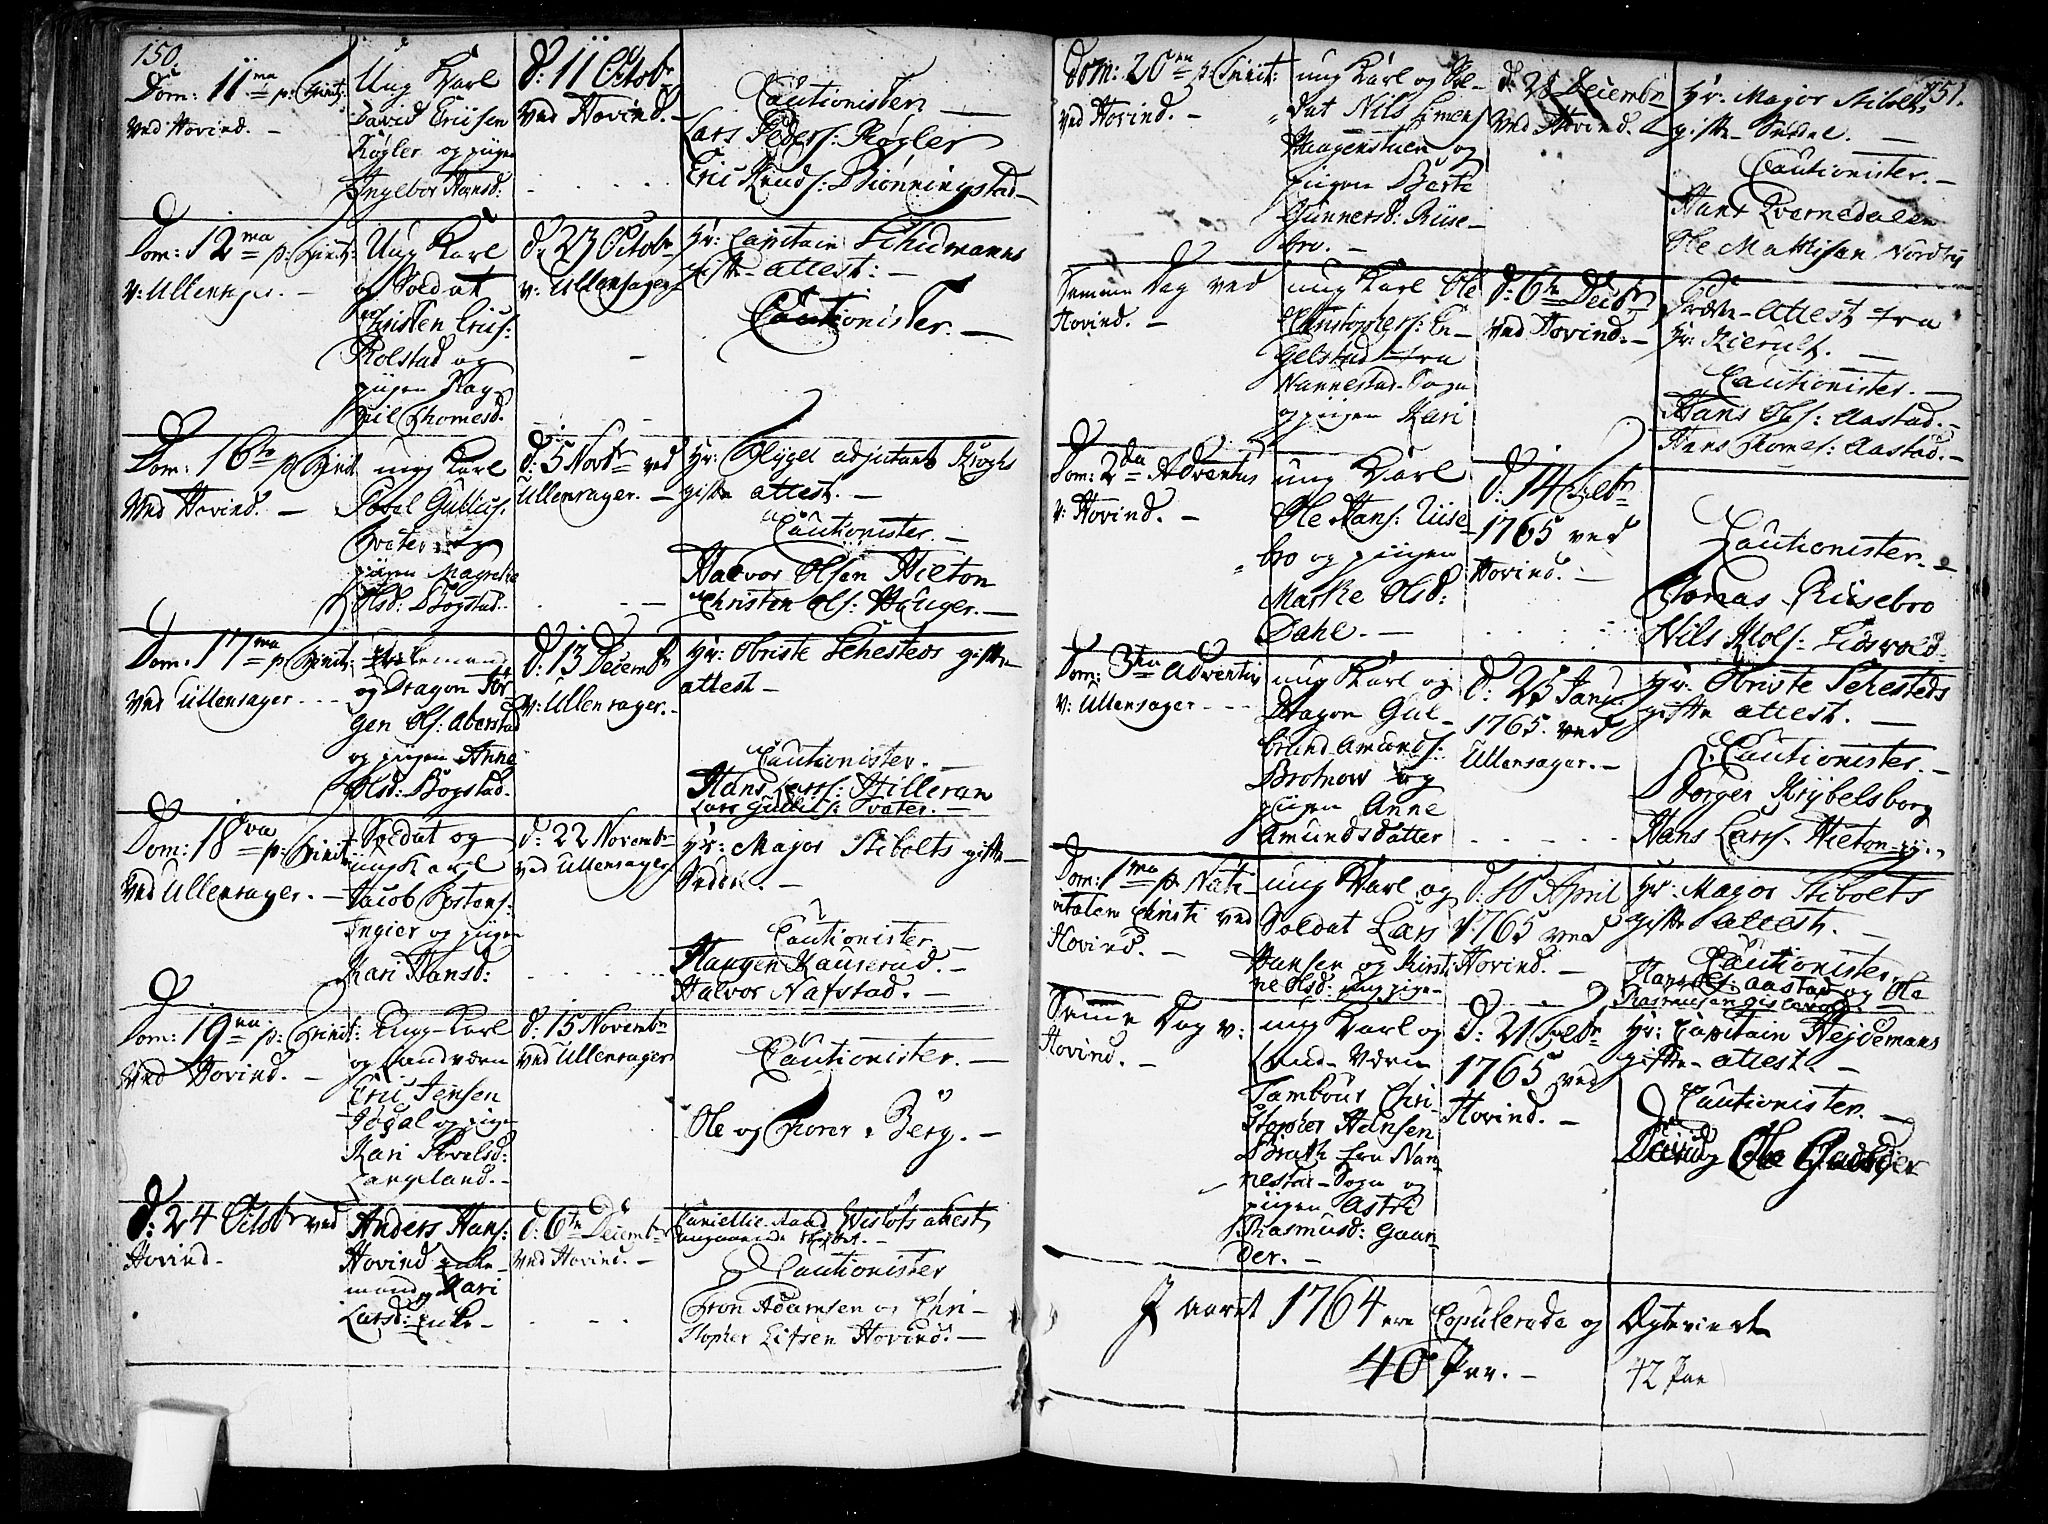 150.
Dom: 11ma p: Trinit:
ved Hovind. —
Ung Karl
David Eriksen
Røgler og pigen
Ingebor Hansd:
d: 11 Octobr
ved Hovind. —
Cautionister —
Lars Peders: Røgler
Eric Knuds: Biønningstad —
Dom: 12ma p: Trinit:
v: Ullensager. —
Ung Karl
og Soldat
Christen Erics:
Rolstad og
pigen Rag-
nil Thomesd.
d: 23 Octobr
v: Ullensager
Hr: Capitain Schidmanns
gifte attest: —
Cautionister. —
Dom: 16de p Trinit
Ved Hovind. —
ung Karl
Povel Gullics:
Tvater og
pigen Magrethe
Olsd: Bogstad.
d: 5 Novbr ved
Ullensager. —
Hr: Flygel adjutant Kroghs
gifte attest. —
Cautionister. —
Halvor Olsen Hilton
Christen Ols: Hauger. —
Dom: 17ma p Trinit:
Ved Ullensager. —
Enkemand
og Dragon Jör
gen Ols: Aberstad
og pigen Anne
Olsd: Bogstad.
d: 13 Decembr
v: Ullensager. —
Hr: Obriste Sehesteds gifte
attest —
Cautionister. —
Hans Larss: Hilleran
Lars Gullics: Tvater. —
Dom: 18va p: Trinit
ved Ullensager. —
Soldat og
ung Karl
Jacob Tostens:
Ingier og pigen
Kari Hansd:
d: 22 Novembr
ved Ullensager
Hr: Major Stibolts gifte
Seddel. —
Cautionister. —
Haagen Kauserud. —
Halvor Nafstad. —
Dom: 19na p: Trinit:
Ved Hovind. —
Ung Karl
og Landværn
Eric Jensen
Jødal og pigen
Kari Povelsd:
Langeland. —
d: 15 Novembr
ved Ullensager
Cautionister. —
Ole og Thorer Berg. —
d: 24 Octobr ved
Hovind.
Anders Hans:
Hovind enke-
mand og Kari
Larsd: enke
d: 6te Decembr
ved Hovind. —
attest
Cautionister
Tron Adamsen og Chri-
stopher Eifsen Hovind. —
151.
Dom: 20de p Trinit:
ved Hovind. —
ung Karl og Sol-
dat Nils Simens
Haagenstuen og
pigen Berte
Gunnersd: Riise-
bro. —
d: 28 Decembr
Ved Hovind.
Hr: Major Stibolts
gifte Seddel. —
Cautionister. —
Hans Qvernedalen
Ole Mattisen Nordby
Samme Dag ved
Hovind. —
ung Karl Ole
Christophers: En-
gelstad fra
Nannestad Sogn
og pigen Kari
d: 6te Decbr
ved Hovind. —
attest fra
Hr: Kierult. —
Cautionister. —
Hans Ols: Aastad. —
Hans Thomes: Aastad. —
Dom: 2da Adventus
v: Hovind. —
ung Karl
Ole Hans: Riise-
bro og pigen
Marthe Olsd:
Dahl. —
d: 14 Febr
1765 ved
Hovind. —
Cautionister. —
Jonas Riisebro
Nils Kiols: Eidsvold
Dom: 3tia Adventus
v: Ullensager —
ung Karl og
Dragon Gul-
brand Amunds:
Brotnow og
pigen Anne
Amundsdatter
d: 25 Janu:
1765. ved
Ullensager. —
Hr: Obriste Sehesteds
gifte attest. —
Cautionister. —
Jörgen Kribelsborg
Hans Larss. Hilton
Dom: 1ma p Nati-
vitatem Christi ved
Hovind. —
ung Karl og
Soldat Lars
Hansen og Kirsti-
ne Olsd: ung pige
d: 18 April
1765 ved
Hovind. —
Hr: Major Stibolts
gifte attest. —
Cautionister.
Hans Ols: Aastad og Ole
Rasmusen Gislevold. —
Samme Dag v:
Hovind. —
ung Karl og
Land-Værn
Tambour Chri-
stopher Hansen
Brath fra Nan-
nestad Sogn og
pigen Astri
Rasmusd: Gaar-
der. —
d: 21 Febr
1765 ved
Hovind. —
Hr: Capitain Hejdemans
gifte attest. —
Cautionister. —
Ole Gaarder
I aaret 1764 ere Copulerede og Ægteviede
40 Par. —
42 Par